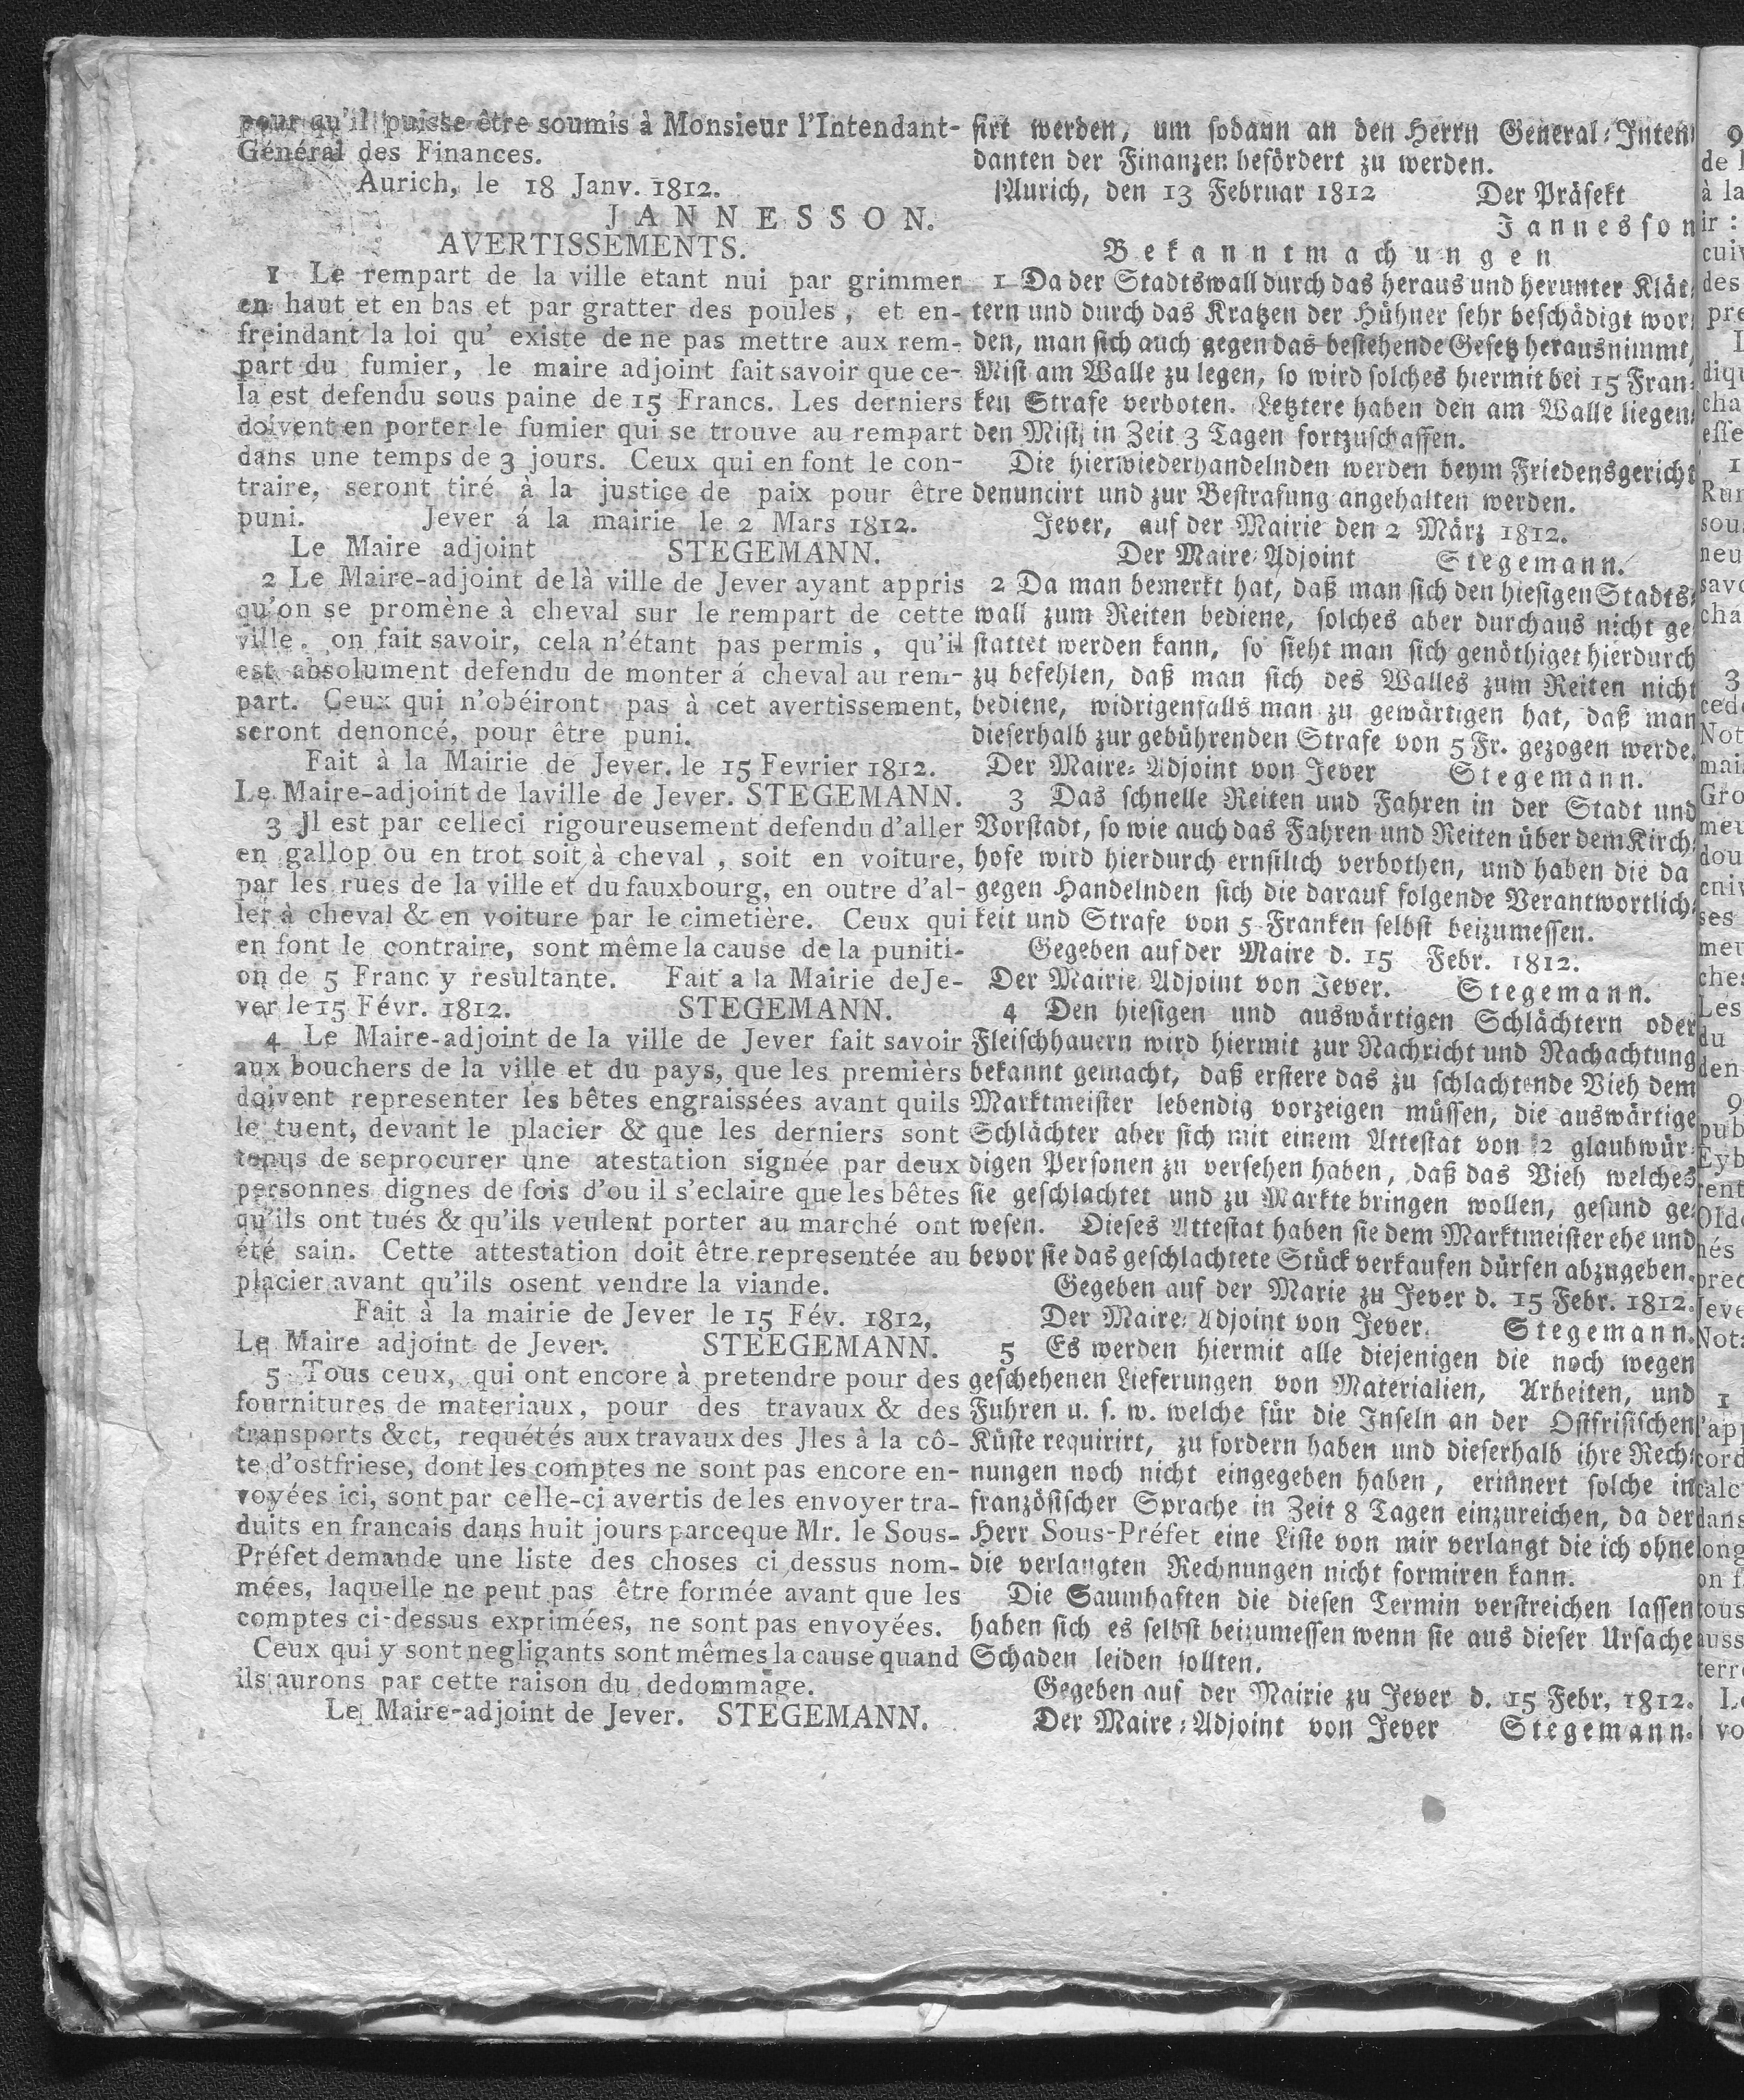 pour qu'il puisse être soumis à Monsieur l'Intendant-
Général des Finances.
Aurich, le 18 Janv. 1812.
JANNESSON.
AVERTISSEMENTS.
1 Le rempart de la ville etant nui par grimmer
en haut et en bas et par gratter des poules, et en-
freindant la loi qu' existe de ne pas mettre aux rem-
part du fumier, le maire adjoint fait savoir que ce-
la est defendu sous paine de 15 Francs. Les derniers
doivent en porter le fumier qui se trouve au rempart
dans une temps de 3 jours. Ceux qui en font le con-
traire, seront tiré à la justice de paix pour être
puni. Jever á la mairie le 2 Mars 1812.
Le Maire adjoint STEGEMANN.
2 Le Maire-adjoint de là ville de Jever ayant appris
qu'on se promène à cheval sur le rempart de cette
ville, on fait savoir, cela n'étant pas permis, qu'il
est absolument defendu de monter á cheval au rem-
part. Ceux qui n'obéiront pas à cet avertissement,
seront denoncé, pour être puni.
Fait à la Mairie de Jever. le 15 Fevrier 1812.
Le Maire-adjoint de laville de Jever. STEGEMANN.
3 Jl est par celleci rigoureusement defendu d'aller
en gallop ou en trot soit à cheval, soit en voiture,
par les rues de la ville et du fauxbourg, en outre d'al-
ler à cheval & en voiture par le cimetière. Ceux qui
en font le contraire, sont même la cause de la puniti-
on de 5 Franc y resultante. Fait a la Mairie de Je-
ver le 15 Févr. 1812. STEGEMANN.
4 Le Maire-adjoint de la ville de Jever fait savoir
aux bouchers de la ville et du pays, que les premièrs
doivent representer les bêtes engraissées avant quils
le tuent, devant le placier & que les derniers sont
tenus de seprocurer une atestation signée par deux
personnes dignes de fois d'ou il s'eclaire que les bêtes
qu'ils ont tués & qu'ils veulent porter au marché ont
été sain. Cette attestation doit être representée au
placier avant qu'ils osent vendre la viande.
Fait à la mairie de Jever le 15 Fév. 1812,
Le Maire adjoint de Jever. STEEGEMANN.
5 Tous ceux, qui ont encore à pretendre pour des
fournitures de materiaux, pour des travaux & des
transports &ct, requétés aux travaux des Jles à la cô-
te d'ostfriese, dont les comptes ne sont pas encore en-
voyées ici, sont par celle-ci avertis de les envoyer tra-
duits en francais dans huit jours parceque Mr. le Sous-
Préfet demande une liste des choses ci dessus nom-
mées, laquelle ne peut pas être formée avant que les
comptes ci-dessus exprimées, ne sont pas envoyées.
Ceux qui y sont negligants sont mêmes la cause quand
ils aurons par cette raison du dedommage.
Le Maire-adjoint de Jever. STEGEMANN.
sirt werden, um sodann an den Herrn General-Inten-
danten der Finanzen befördert zu werden.
Aurich, den 13 Februar 1812 Der Präfekt
Jannesson
Bekanntmachungen
1 Da der Stadtswall durch das heraus und herunter Klät-
tern und durch das Kratzen der Hühner sehr beschädigt wor-
den, man sich auch gegen das bestehende Gesetz herausnimmt,
Mist am Walle zu legen, so wird solches hiermit bei 15 Fran-
ken Strafe verboten. Letztere haben den am Walle liegen-
den Mist, in Zeit 3 Tagen fortzuschaffen.
Die hierwiederhandelnden werden beym Friedensgericht
denuncirt und zur Bestrafung angehalten werden.
Jever, auf der Mairie den 2 März 1812.
Der Maire-Adjoint Stegemann.
2 Da man bemerkt hat, daß man sich den hiesigen Stadts-
wall zum Reiten bediene, solches aber durchaus nicht ge-
stattet werden kann, so sieht man sich genöthiget hierdurch
zu befehlen, daß man sich des Walles zum Reiten nicht
bediene, widrigenfalls man zu gewärtigen hat, daß man
dieserhalb zur gebührenden Strafe von 5 Fr. gezogen werde.
Der Maire-Adjoint von Jever Stegemann.
3 Das schnelle Reiten und Fahren in der Stadt und
Vorstadt, so wie auch das Fahren und Reiten über dem Kirch-
hofe wird hierdurch ernstlich verbothen, und haben die da
gegen Handelnden sich die darauf folgende Verantwortlich-
keit und Strafe von 5 Franken selbst beizumessen.
Gegeben auf der Maire d. 15 Febr. 1812.
Der Mairie Adjoint von Jever. Stegemann.
4 Den hiesigen und auswärtigen Schlächtern oder
Fleischhauern wird hiermit zur Nachricht und Nachachtung
bekannt gemacht, daß erstere das zu schlachtende Vieh dem
Marktmeister lebendig vorzeigen müssen, die auswärtige
Schlächter aber sich mit einem Attestat von 2 glaubwür-
digen Personen zu versehen haben, daß das Vieh welches
sie geschlachtet und zu Markte bringen wollen, gesund ge-
wesen. Dieses Attestat haben sie dem Marktmeister ehe und
bevor sie das geschlachtete Stück verkaufen dürfen abzugeben.
Gegeben auf der Marie zu Jever d. 15 Febr. 1812.
Der Maire-Adjoint von Jever. Stegemann.
5 Es werden hiermit alle diejenigen die noch wegen
geschehenen Lieferungen von Materialien, Arbeiten, und
Fuhren u. s. w. welche für die Inseln an der Ostfrisischen
Küste requirirt, zu fordern haben und dieserhalb ihre Rech-
nungen noch nicht eingegeben haben, erinnert solche in
französischer Sprache in Zeit 8 Tagen einzureichen, da der
Herr Sous-Préfet eine Liste von mir verlangt die ich ohne
die verlangten Rechnungen nicht formiren kann.
Die Saumhaften die diesen Termin verstreichen lassen
haben sich es selbst beizumessen wenn sie aus dieser Ursache
Schaden leiden sollten.
Gegeben auf der Mairie zu Jever d. 15 Febr. 1812.
Der Maire-Adjoint von Jever Stegemann.